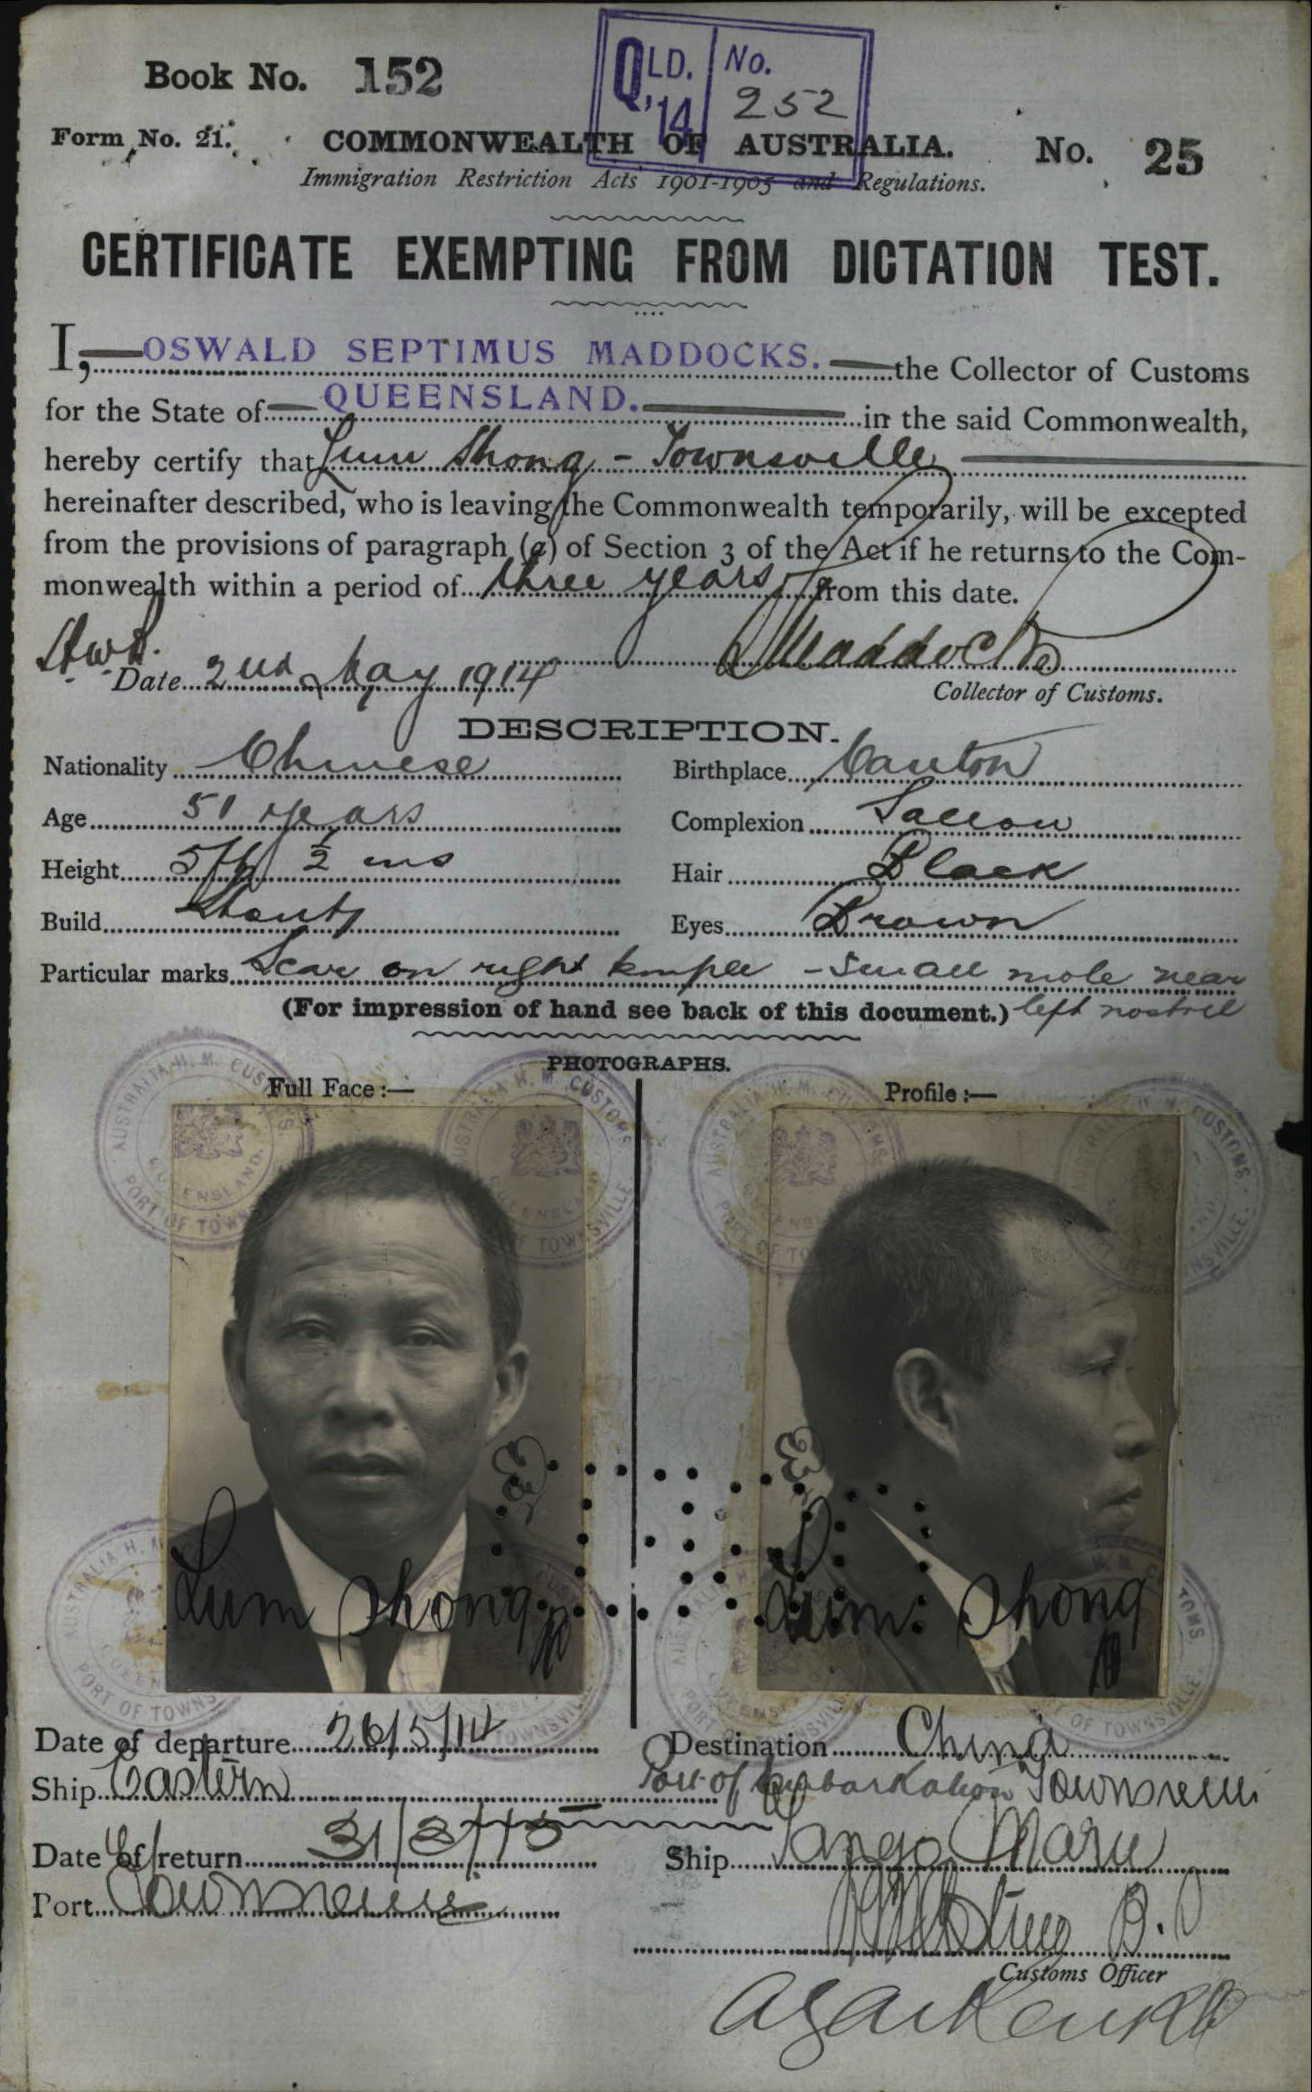 Book No. 152
QLD. No.
'14 252
Form No. 21. COMMONWEALTH OF AUSTRALIA. No. 25
Immigration Restriction Acts 1901-1905 and Regulations.
CERTIFICATE EXEMPTING FROM DICTATION TEST.
I, OSWALD SEPTIMUS MADDOCKS. the Collector of Customs
for the State of QUEENSLAND. in the said Commonwealth,
hereby certify that Lum Shong - Townsville
hereinafter described, who is leaving the Commonwealth temporarily, will be excepted
from the provisions of paragraph (a) of Section 3 of the Act if he returns to the Com-
monwealth within a period of three years from this date.
Maddocks
Date 2nd May 1914
Collector of Customs.
DESCRIPTION.
Nationality Chinese Birthplace Canton
Age 51 years Complexion Sallow
Height 5ft ½ ins Hair Black
Build Stout Eyes Brown
Particular marks Scar on right temple - small mole near
(For impression of hand see back of this document.) left nostril
PHOTOGRAPHS.
Full Face :— Profile :—
AUSTRALIA H. M. CUSTOMS
QUEENSLAND.
PORT OF TOWNSVILLE
Lum Shong Lum Shong
Date of departure 26/5/14 Destination China
Ship Eastern Port of Embarkation Townsville
Date of return 31/8/15 Ship Tango Maru
Port Townsville
B.
Customs Officer